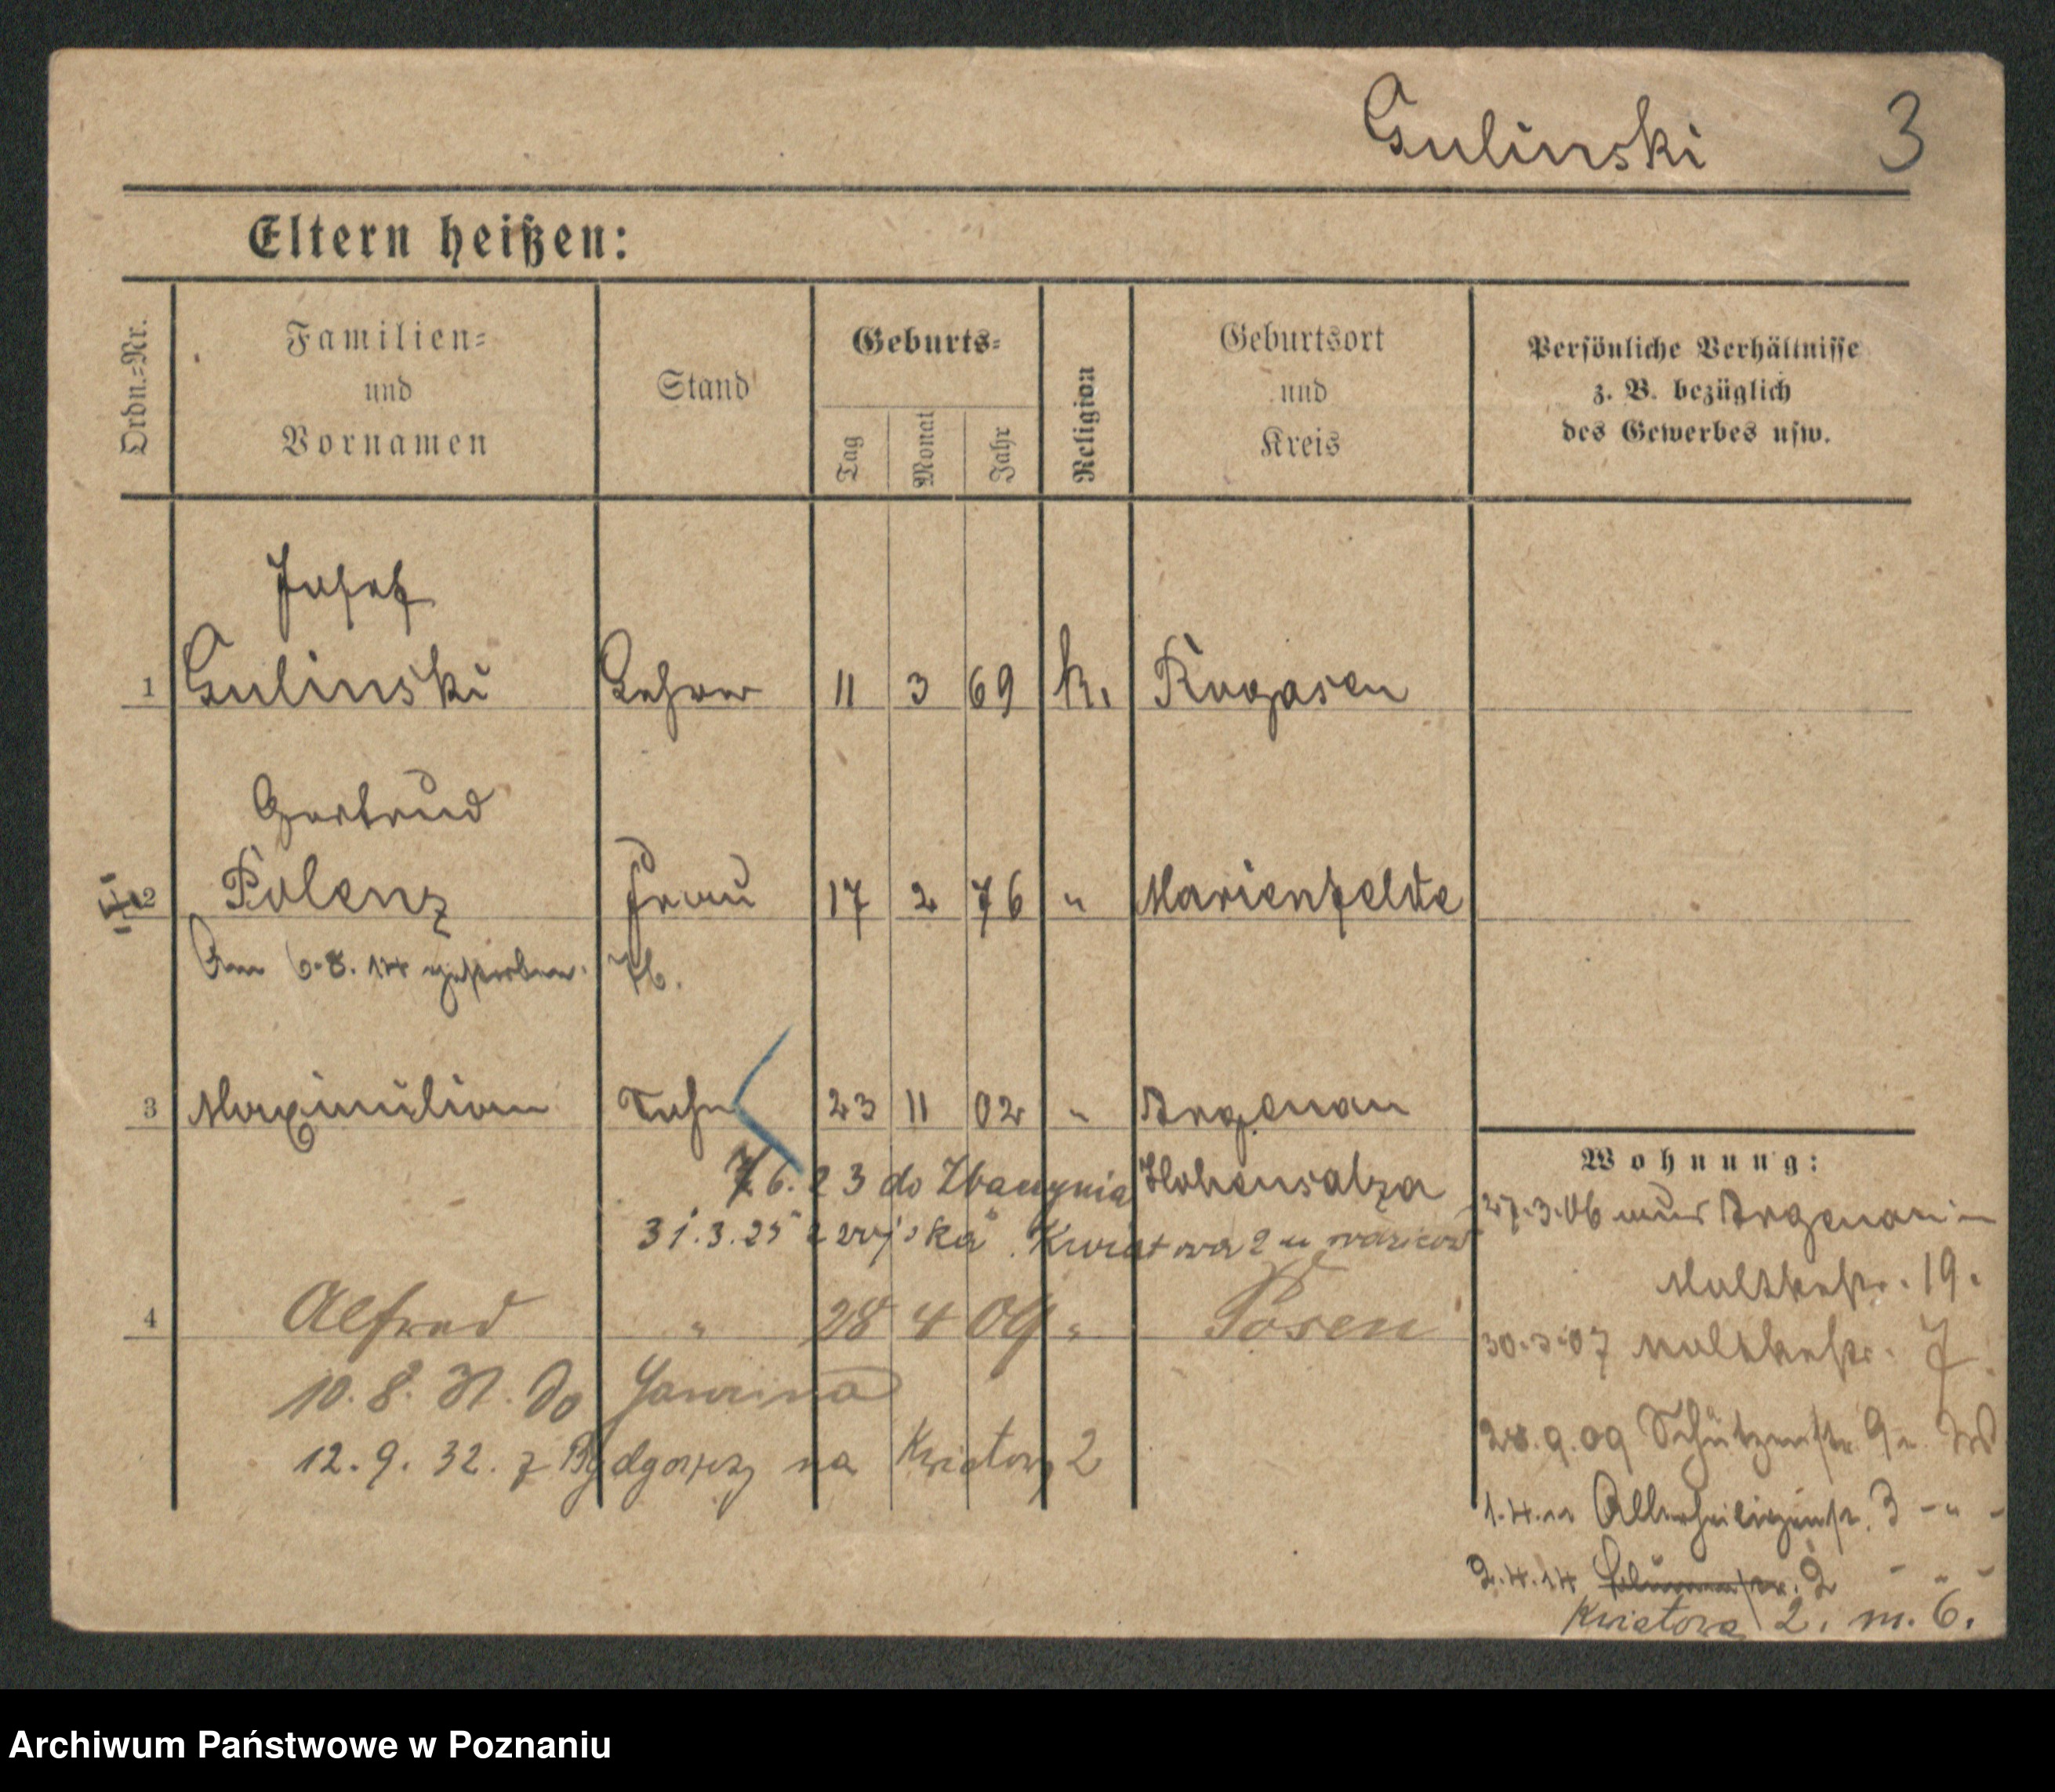 Gulinski 3
Eltern heißen:
Ordn.=Nr.
Familien=
und
Vornamen
Stand
Geburts=
Tag
Monat
Jahr
Religion
Geburtsort
und
Kreis
Persönliche Verhältnisse
z. B. bezüglich
des Gewerbes usw.
Josef
1 Gulinski Lehrer 11 3 69 k. Rogasen
Gertrud
2 Polenz Frau 17 2 76 " Marienfelde
Am 6.8.14 gestorben.
3 Maximilian Sohn 23 11 02 " Argenau
7.6.23 do Zbąszynia Hohensalza
31.3.25 z wojska Kwiatowa 2 u
4 Alfred " 28 4 09 " Posen
10.8.31. do
12.9.32. z Bydgoszczy na Kwiatową 2
Wohnung:
27.3.06 aus Argenau
Moltkestr. 19.
30.3.07 Moltkestr. 7
28.9.09 Schützenstr. 9
1.4.11 Allerheiligenstr. 3 - " -
2.4.14 Blumenstr. 2 - " -
Kwiatowa 2. m. 6.
Archiwum Państwowe w Poznaniu